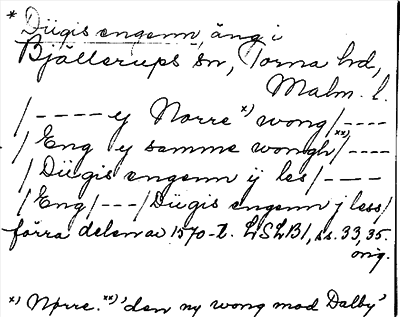 * Dügis engenn, äng i
Bjällerups sn, Torna hd,
Malm. l.
/---- y Norre *) wong /----
/ Eng y samme wongh **) /----
/ Dügis engenn ij les /----
/ Eng /---/ Dügis engenn j less /
förra delen av 1570-t. LSLB1, ss. 33, 35.
orig.
*) Nørre. **) 'den ny wong mod Dalby'